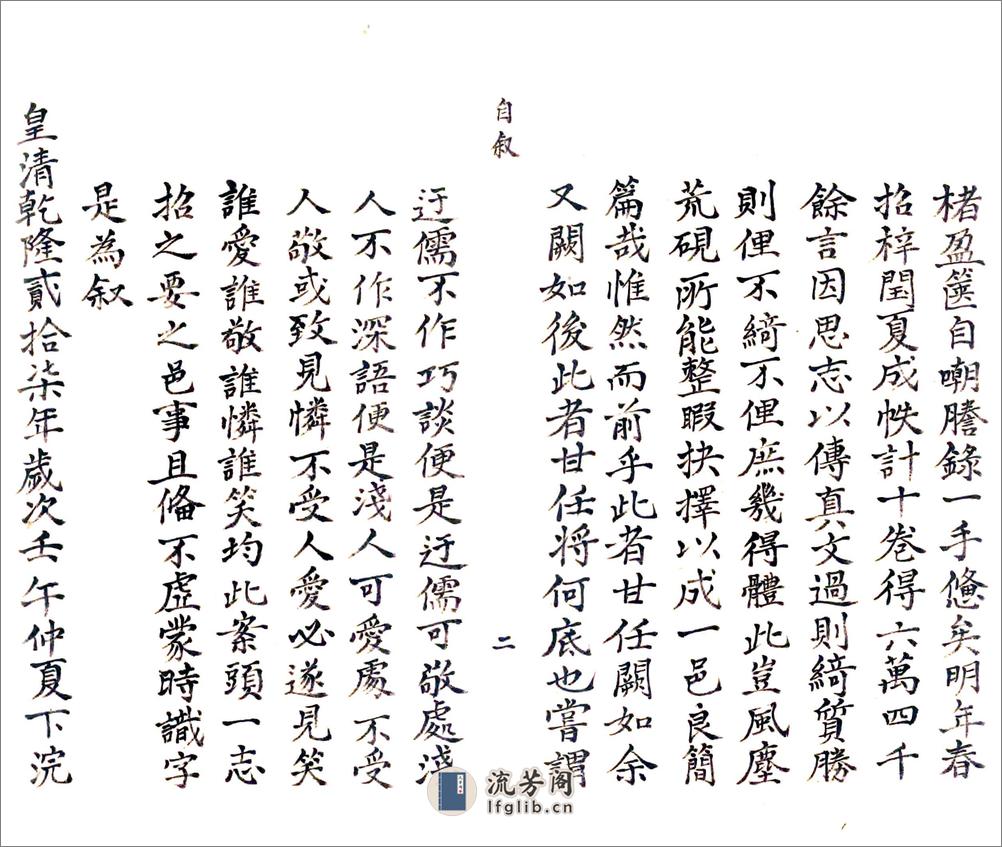 楮盈篋自嘲謄錄一手憊矣明年春
招梓閏夏成帙計十卷得六萬四千
餘言因思志以傳真文過則綺質勝
則俚不綺不俚庶幾得體此豈風塵
荒硯所能整暇抉擇以成一邑良簡
篇哉惟然而前乎此者甘任闕如余
又闕如後此者甘任將何底也嘗謂
自叙
二
迂儒不作巧談便是迂儒可敬處淺
人不作深語便是淺人可愛處不受
人敬或致見憐不受人愛必遂見笑
誰愛誰敬誰憐誰笑均此案頭一志
招之要之邑事且俻不虛蒙時譏字
是為叙
皇清乾隆貳拾柒年歲次壬午仲夏下浣
流芳阁
lfglib.cn